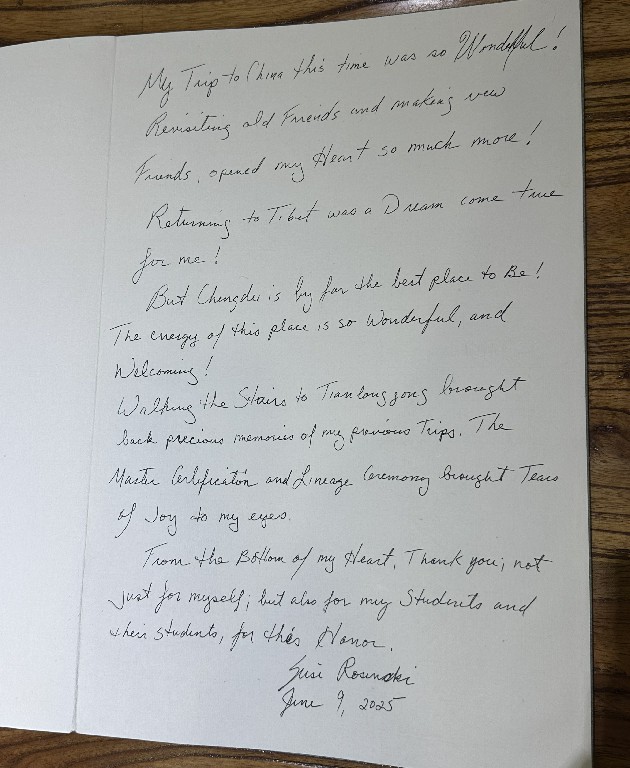 My Trip to China this time was so Wonderful!
Revisiting old Friends and making new
Friends, opened my Heart so much more!
Returning to Tibet was a Dream come true
for me!
But Chengdu is by far the best place to Be!
The energy of this place is so Wonderful, and
Welcoming!
Walking the Stairs to Tianlonggong brought
back precious memories of my previous Trips. The
Master Certification and Lineage Ceremony brought Tears
of Joy to my eyes.
From the Bottom of my Heart, Thank you; not
just for myself; but also for my Students and
their students, for this Honor.
Susi Rosinski
June 9, 2025